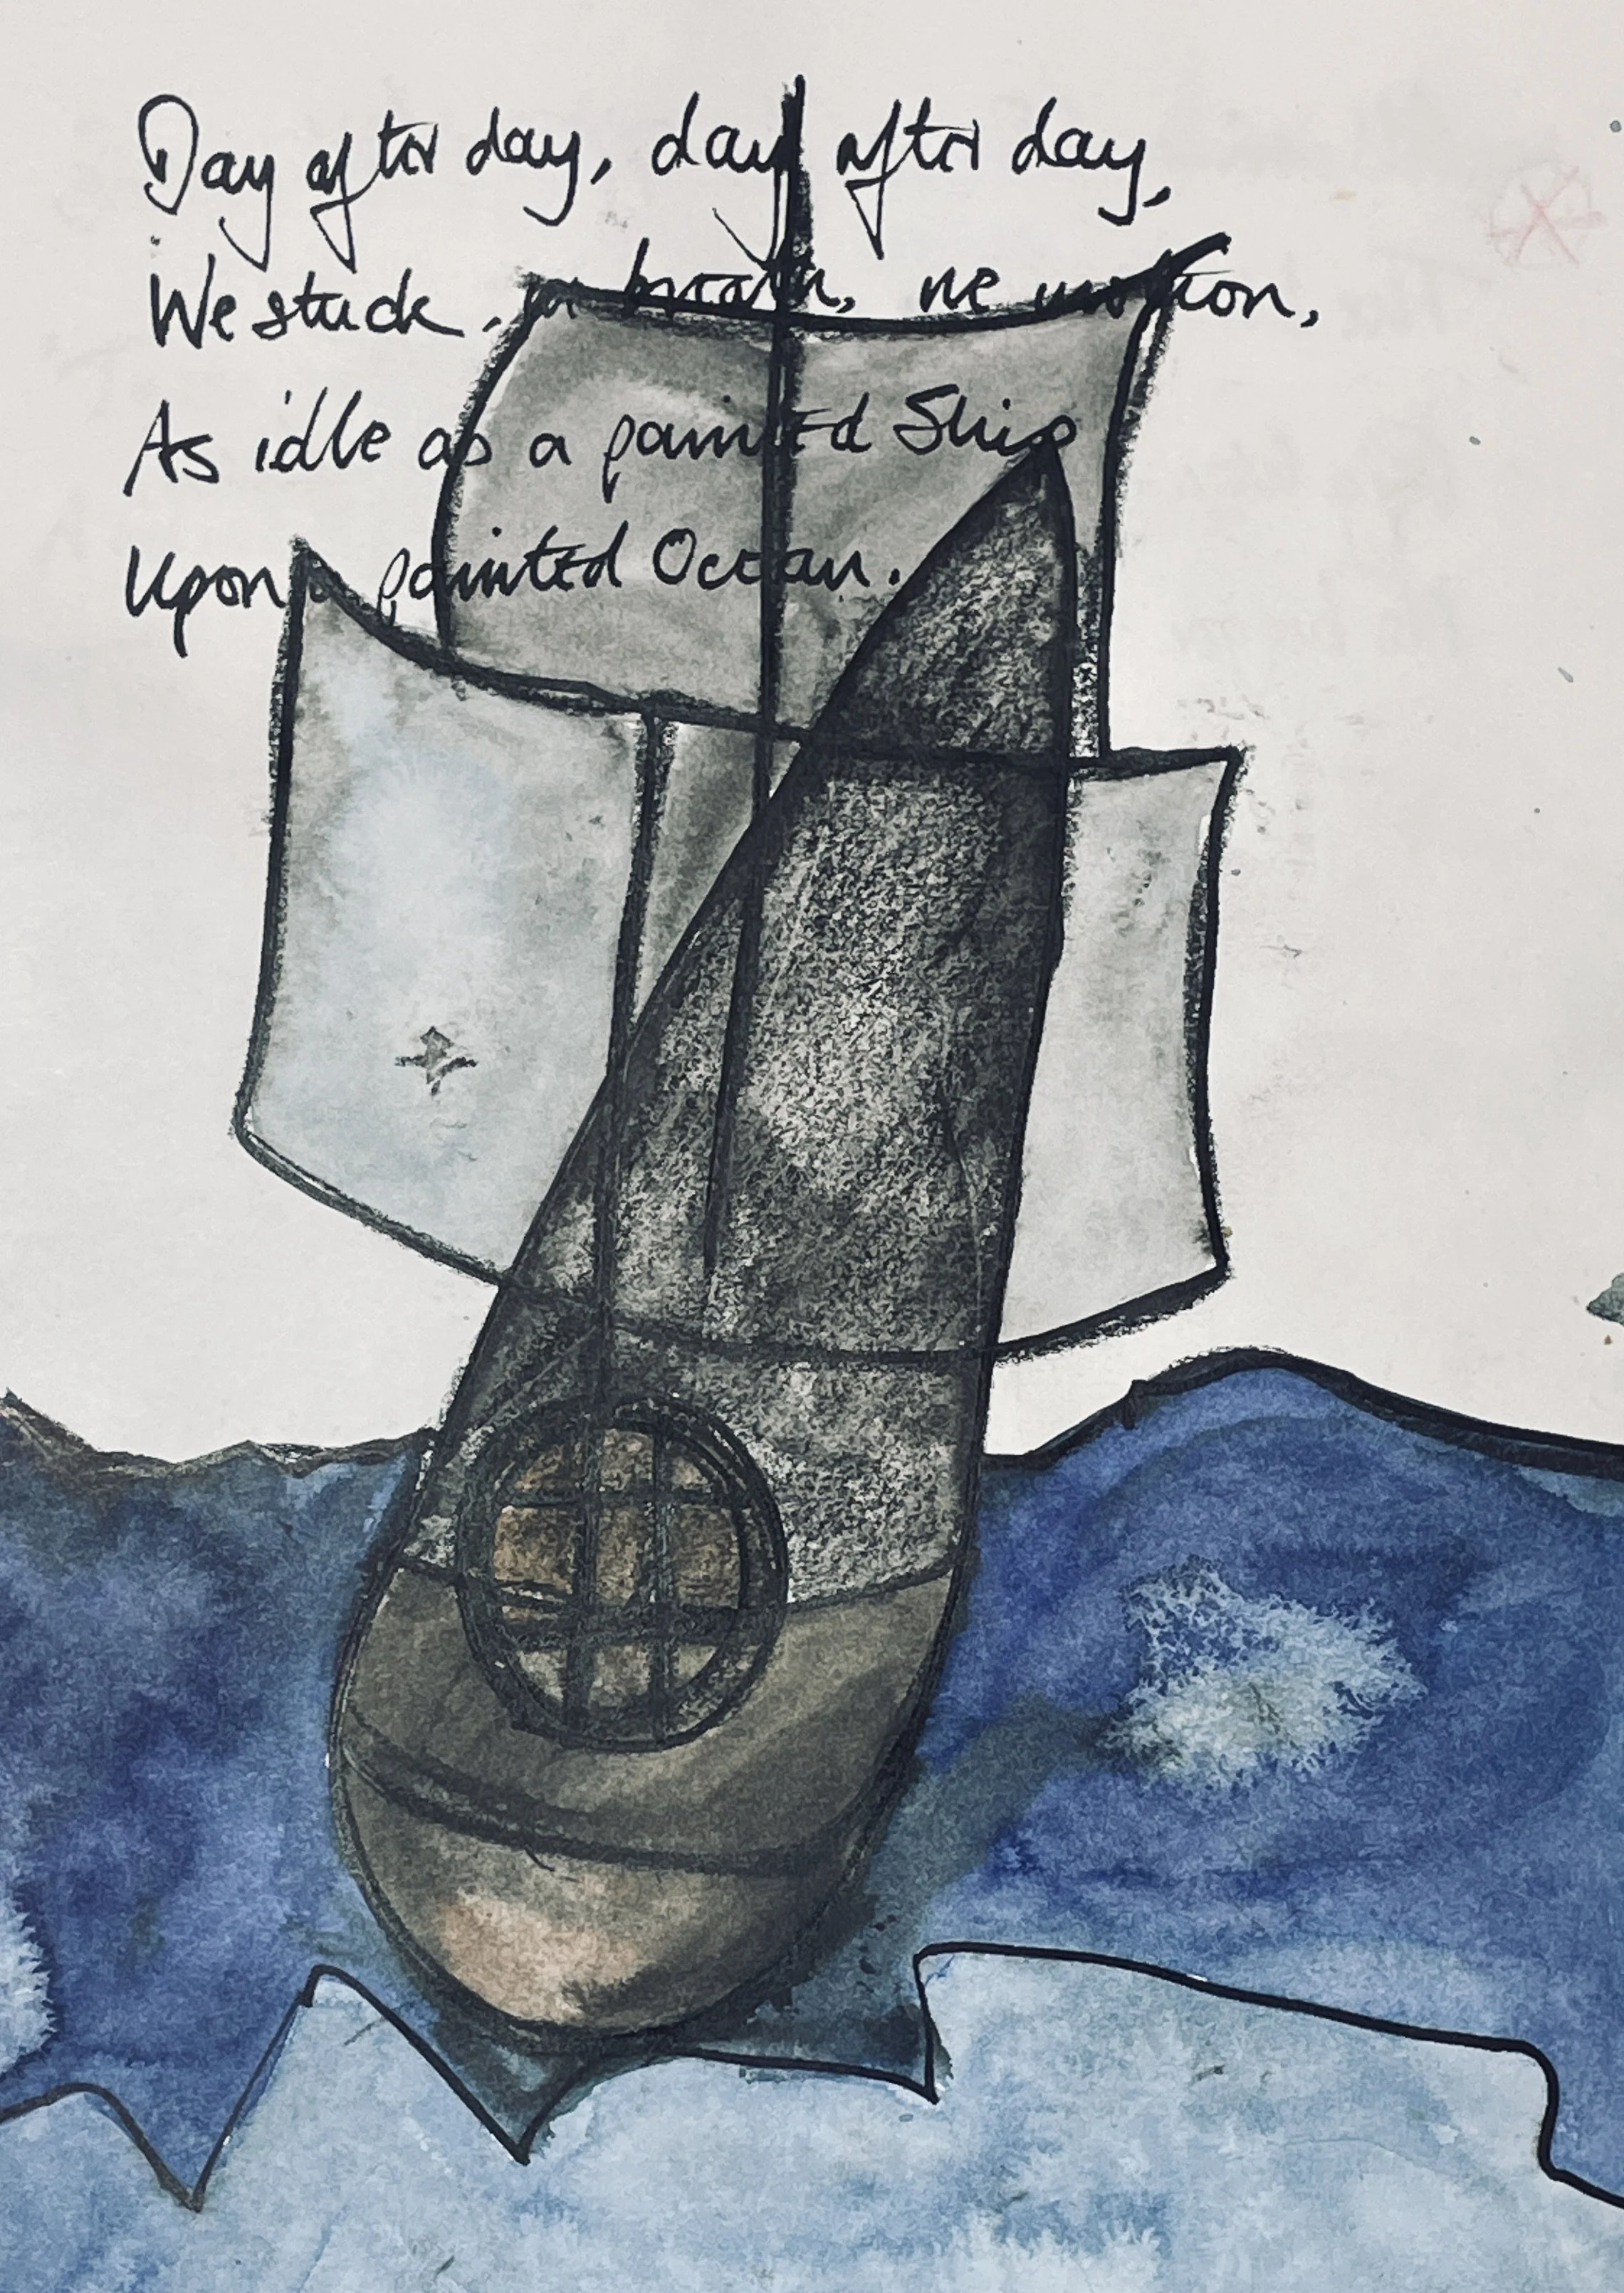 Day after day, day after day,
We stuck, ne breath, ne motion,
As idle as a painted Ship
Upon a painted Ocean.